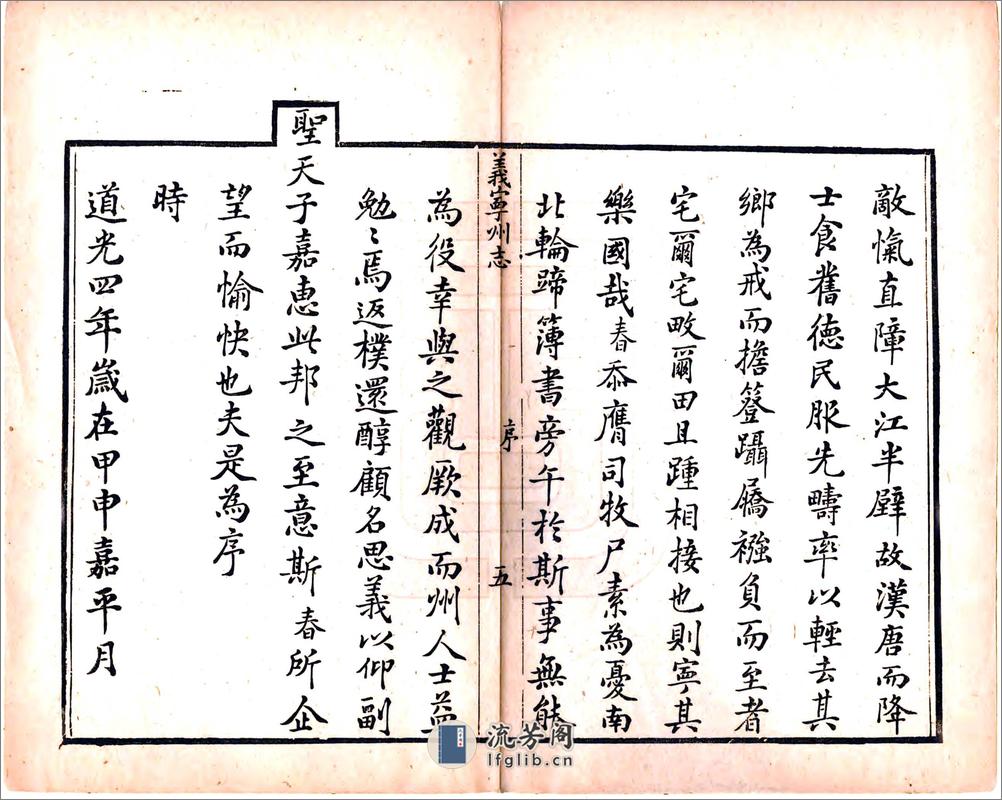 敵愾直障大江半壁故漢唐而降
士食舊德民服先疇率以輕去其
鄉為戒而擔簦躡屩襁負而至者
宅爾宅畋爾田且踵相接也則寧其
樂國哉春忝膺司牧尸素為憂南
北輪蹄簿書旁午於斯事無能
義寧州志
序
五
為役幸與之觀厥成而州人士益
勉〻焉返樸還醇顧名思義以仰副
聖天子嘉惠此邦之至意斯春所企
望而愉快也夫是為序
時
道光四年歲在甲申嘉平月
流芳阁
lfglib.cn